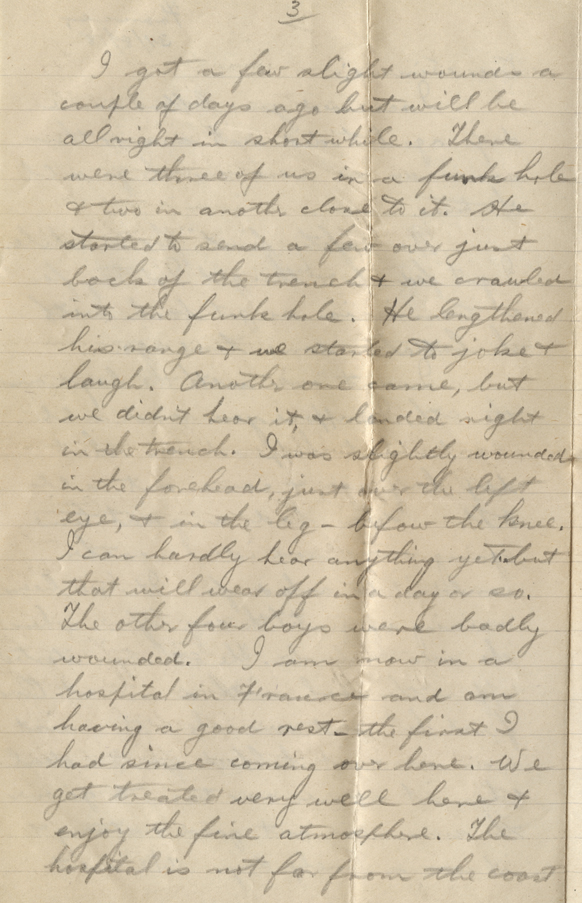 3
I got a few slight wounds a
couple of days ago but will be
allright in short while. There
were three of us in a funk hole
& two in another close to it. He
started to send a few over just
back of the trench & we crawled
into the funk hole. He lengthened
his range & we started to joke &
laugh. Another one came, but
we didn't hear it, & landed right
in the trench. I was slightly wounded
in the forehead, just over the left
eye, & in the leg - below the knee.
I can hardly hear anything yet but
that will wear off in a day or so.
The other four boys were badly
wounded. I am now in a
hospital in France and am
having a good rest - the first I
had since coming over here. We
get treated very well here &
enjoy the fine atmosphere. The
hospital is not far from the coast